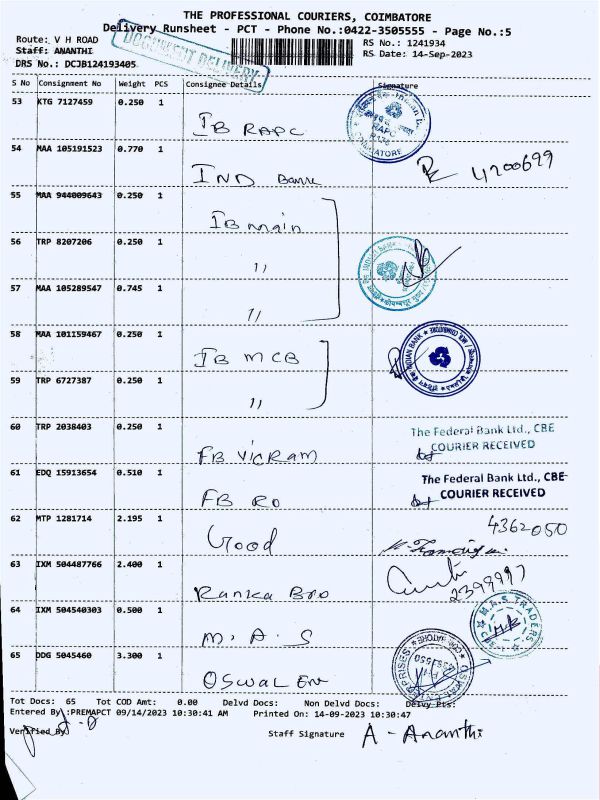 THE PROFESSIONAL COURIERS, COIMBATORE
Delivery Runsheet - PCT - Phone No.:0422-3505555 - Page No.:5
Route: V H ROAD
RS No.: 1241934
Staff: ANANTHI
RS Date: 14-Sep-2023
DRS No.: DCJB124193405
DOCUMENT DELIVERY
S No Consignment No Weight PCS Consignee Details Signature
53 KTG 7127459 0.250 1 IB RAPC
COIMBATORE
54 MAA 105191523 0.770 1 IND Bank 4200699
55 MAA 944009643 0.250 1 IB main
56 TRP 8207206 0.250 1 11
57 MAA 105289547 0.745 1 11
58 MAA 101159467 0.250 1 IB MCB
INDIAN BANK
59 TRP 6727387 0.250 1 11
60 TRP 2038403 0.250 1 FB VICRAM
The Federal Bank Ltd., CBE
COURIER RECEIVED
61 EDQ 15913654 0.510 1 FB RO
The Federal Bank Ltd., CBE
COURIER RECEIVED
62 MTP 1281714 2.195 1 Good 4362050
63 IXM 504487766 2.400 1 Ranka Bro 2399997
64 IXM 504540303 0.500 1 M. A. S
M.A.S TRADERS
65 DDG 5045460 3.300 1 OSWAL Ent
Tot Docs: 65 Tot COD Amt: 0.00 Delvd Docs: Non Delvd Docs: Delvy Pts:
Entered By :PREMAPCT 09/14/2023 10:30:41 AM Printed On: 14-09-2023 10:30:47
Verified By
Staff Signature A - Ananthi